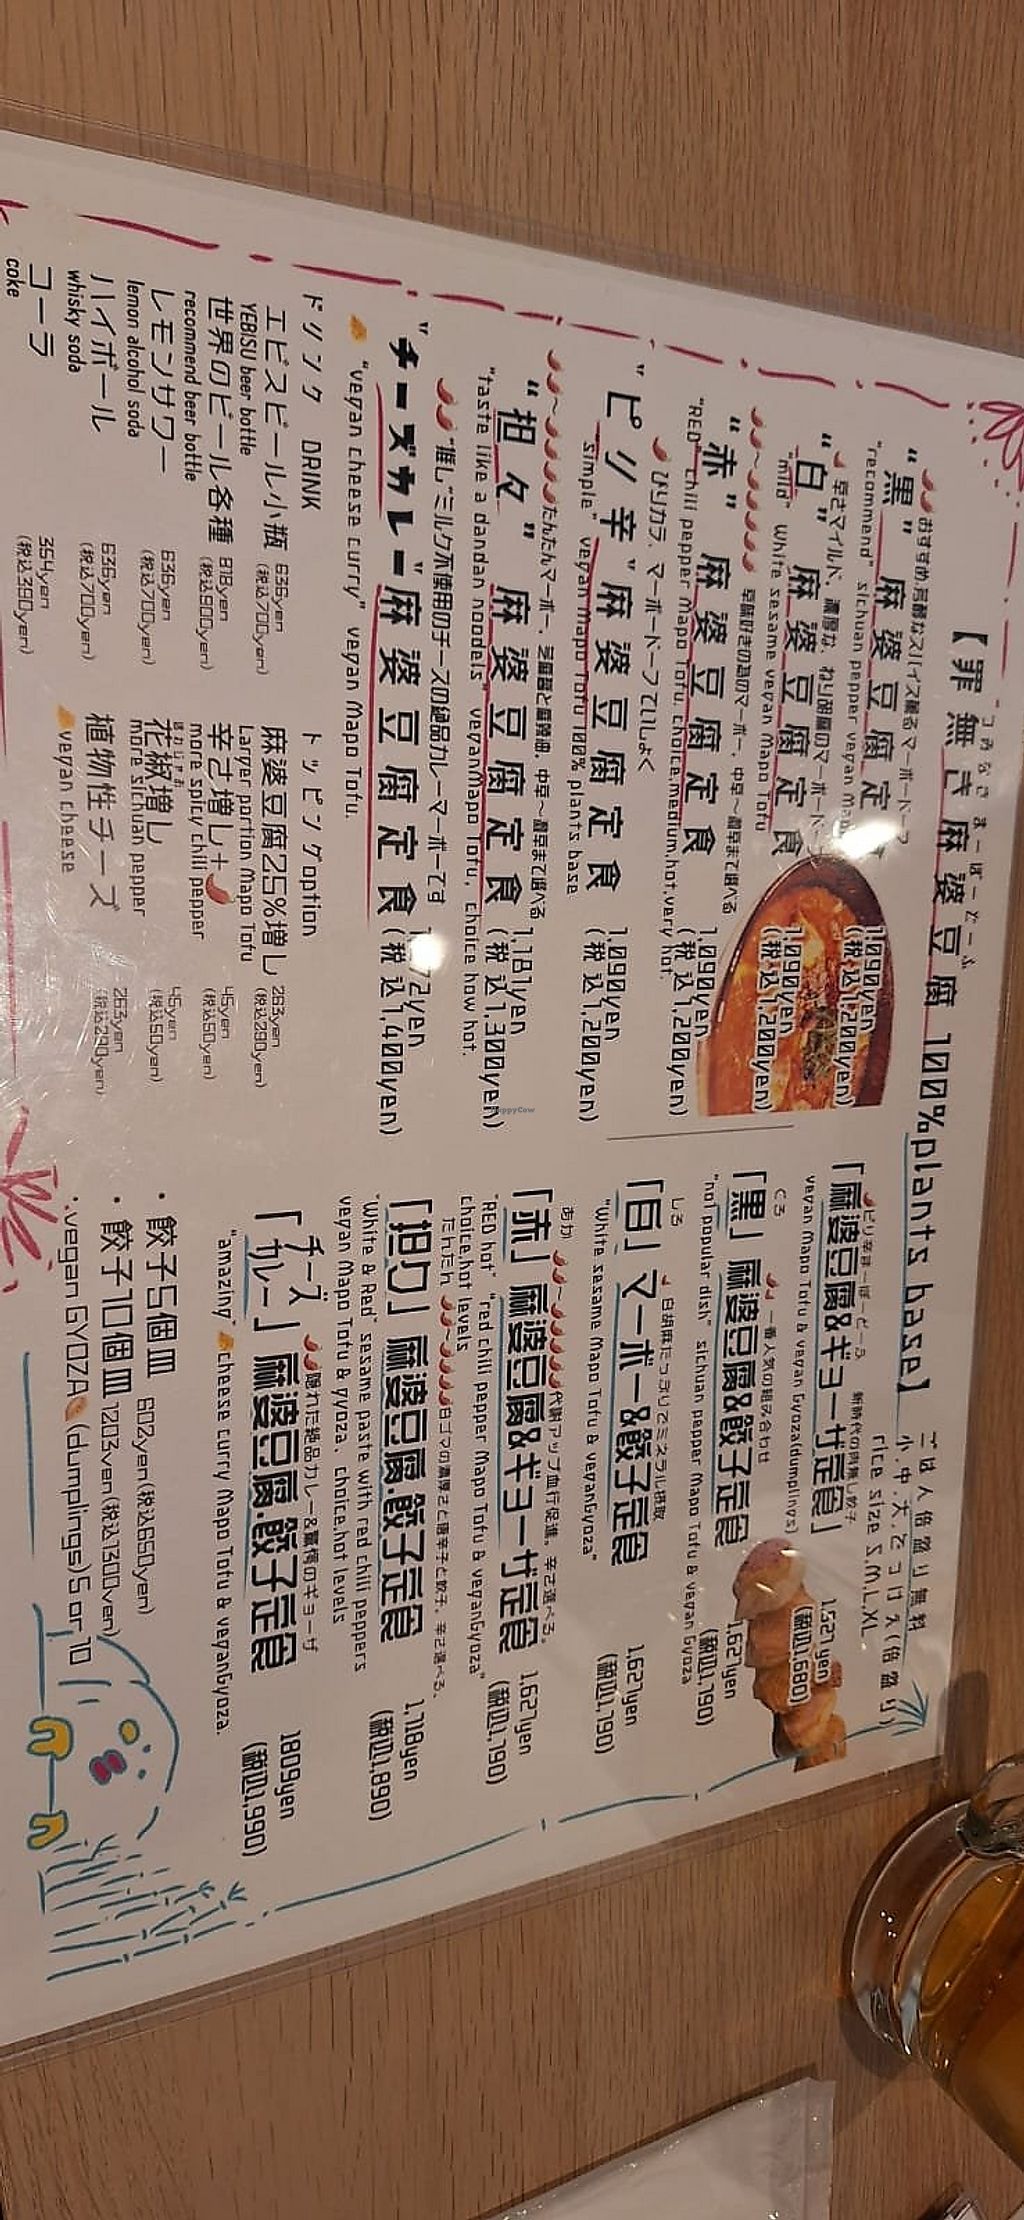 【罪無き麻婆豆腐 100%plants base】
つみなき まーぼーどーふ
ごはん倍盛り無料
小.中.大.とっけん(倍盛り)
rice size S.M.L.XL
"黒" 麻婆豆腐定食
1,090yen
(税込1,200yen)
"recommend" sichuan pepper vegan
"白" 麻婆豆腐定食
1,090yen
(税込1,200yen)
"mild" White sesame vegan Mapo Tofu
"赤" 麻婆豆腐定食
1,090yen
(税込1,200yen)
"RED" chili pepper Mapo Tofu, choice,medium,hot,very hot
ひりカラ、マーボードーフていしょく
"ピリ辛" 麻婆豆腐定食
1,090yen
(税込1,200yen)
"simple" vegan Mapo Tofu 100% plants base
"担々" 麻婆豆腐定食
1,181yen
(税込1,300yen)
"taste like a dandan noodels" veganMapo Tofu, choice how hot.
"推し"ミルク不使用のチーズの絶品カレーマーボーです
"チーズカレー" 麻婆豆腐定食
(税込1,400yen)
"vegan cheese curry" vegan Mapo Tofu.
ドリンク DRINK
エビスビール小瓶 636yen
YEBISU beer bottle (税込700yen)
世界のビール各種 818yen
recommend beer bottle (税込900yen)
レモンサワー 636yen
lemon alcohol soda (税込700yen)
ハイボール 636yen
whisky soda (税込700yen)
コーラ 354yen
coke (税込390yen)
トッピングoption
麻婆豆腐25%増し 263yen
Larger portion Mapo Tofu (税込290yen)
辛さ増し+ 45yen
more spicy chili pepper (税込50yen)
花椒増し 45yen
more sichuan pepper (税込50yen)
植物性チーズ 263yen
vegan cheese (税込290yen)
「麻婆豆腐&ギョーザ定食」
1,527yen
(税込1,680)
vegan Mapo Tofu & vegan Gyoza(dumplings)
くろ 一番人気の組み合わせ
「黒」麻婆豆腐&餃子定食
1,627yen
(税込1,790)
"hot popular dish" sichuan pepper Mapo Tofu & vegan Gyoza
しろ 白胡麻たっぷりでミネラル摂取
「白」マーボー&餃子定食
1,627yen
(税込1,790)
"White sesame Mapo Tofu & veganGyoza"
あか 代謝アップ血行促進。辛さ選べる。
「赤」麻婆豆腐&ギョーザ定食
1,627yen
(税込1,790)
"RED hot" "red chili pepper Mapo Tofu & veganGyoza"
choice,hot levels
たんたん 白ゴマの濃厚さと唐辛子と餃子。辛さ選べる。
「担々」麻婆豆腐.餃子定食
1,718yen
(税込1,890)
"White & Red" sesame paste with red chili peppers
vegan Mapo Tofu & gyoza. choice,hot levels
隠れた絶品カレー&驚愕のギョーザ
「チーズカレー」麻婆豆腐.餃子定食
1809yen
(税込1,990)
"amazing" cheese curry Mapo Tofu & veganGyoza.
・餃子5個皿 602yen(税込650yen)
・餃子10個皿 1203yen(税込1300yen)
・vegan GYOZA (dumplings)5 or 10
HappyCow